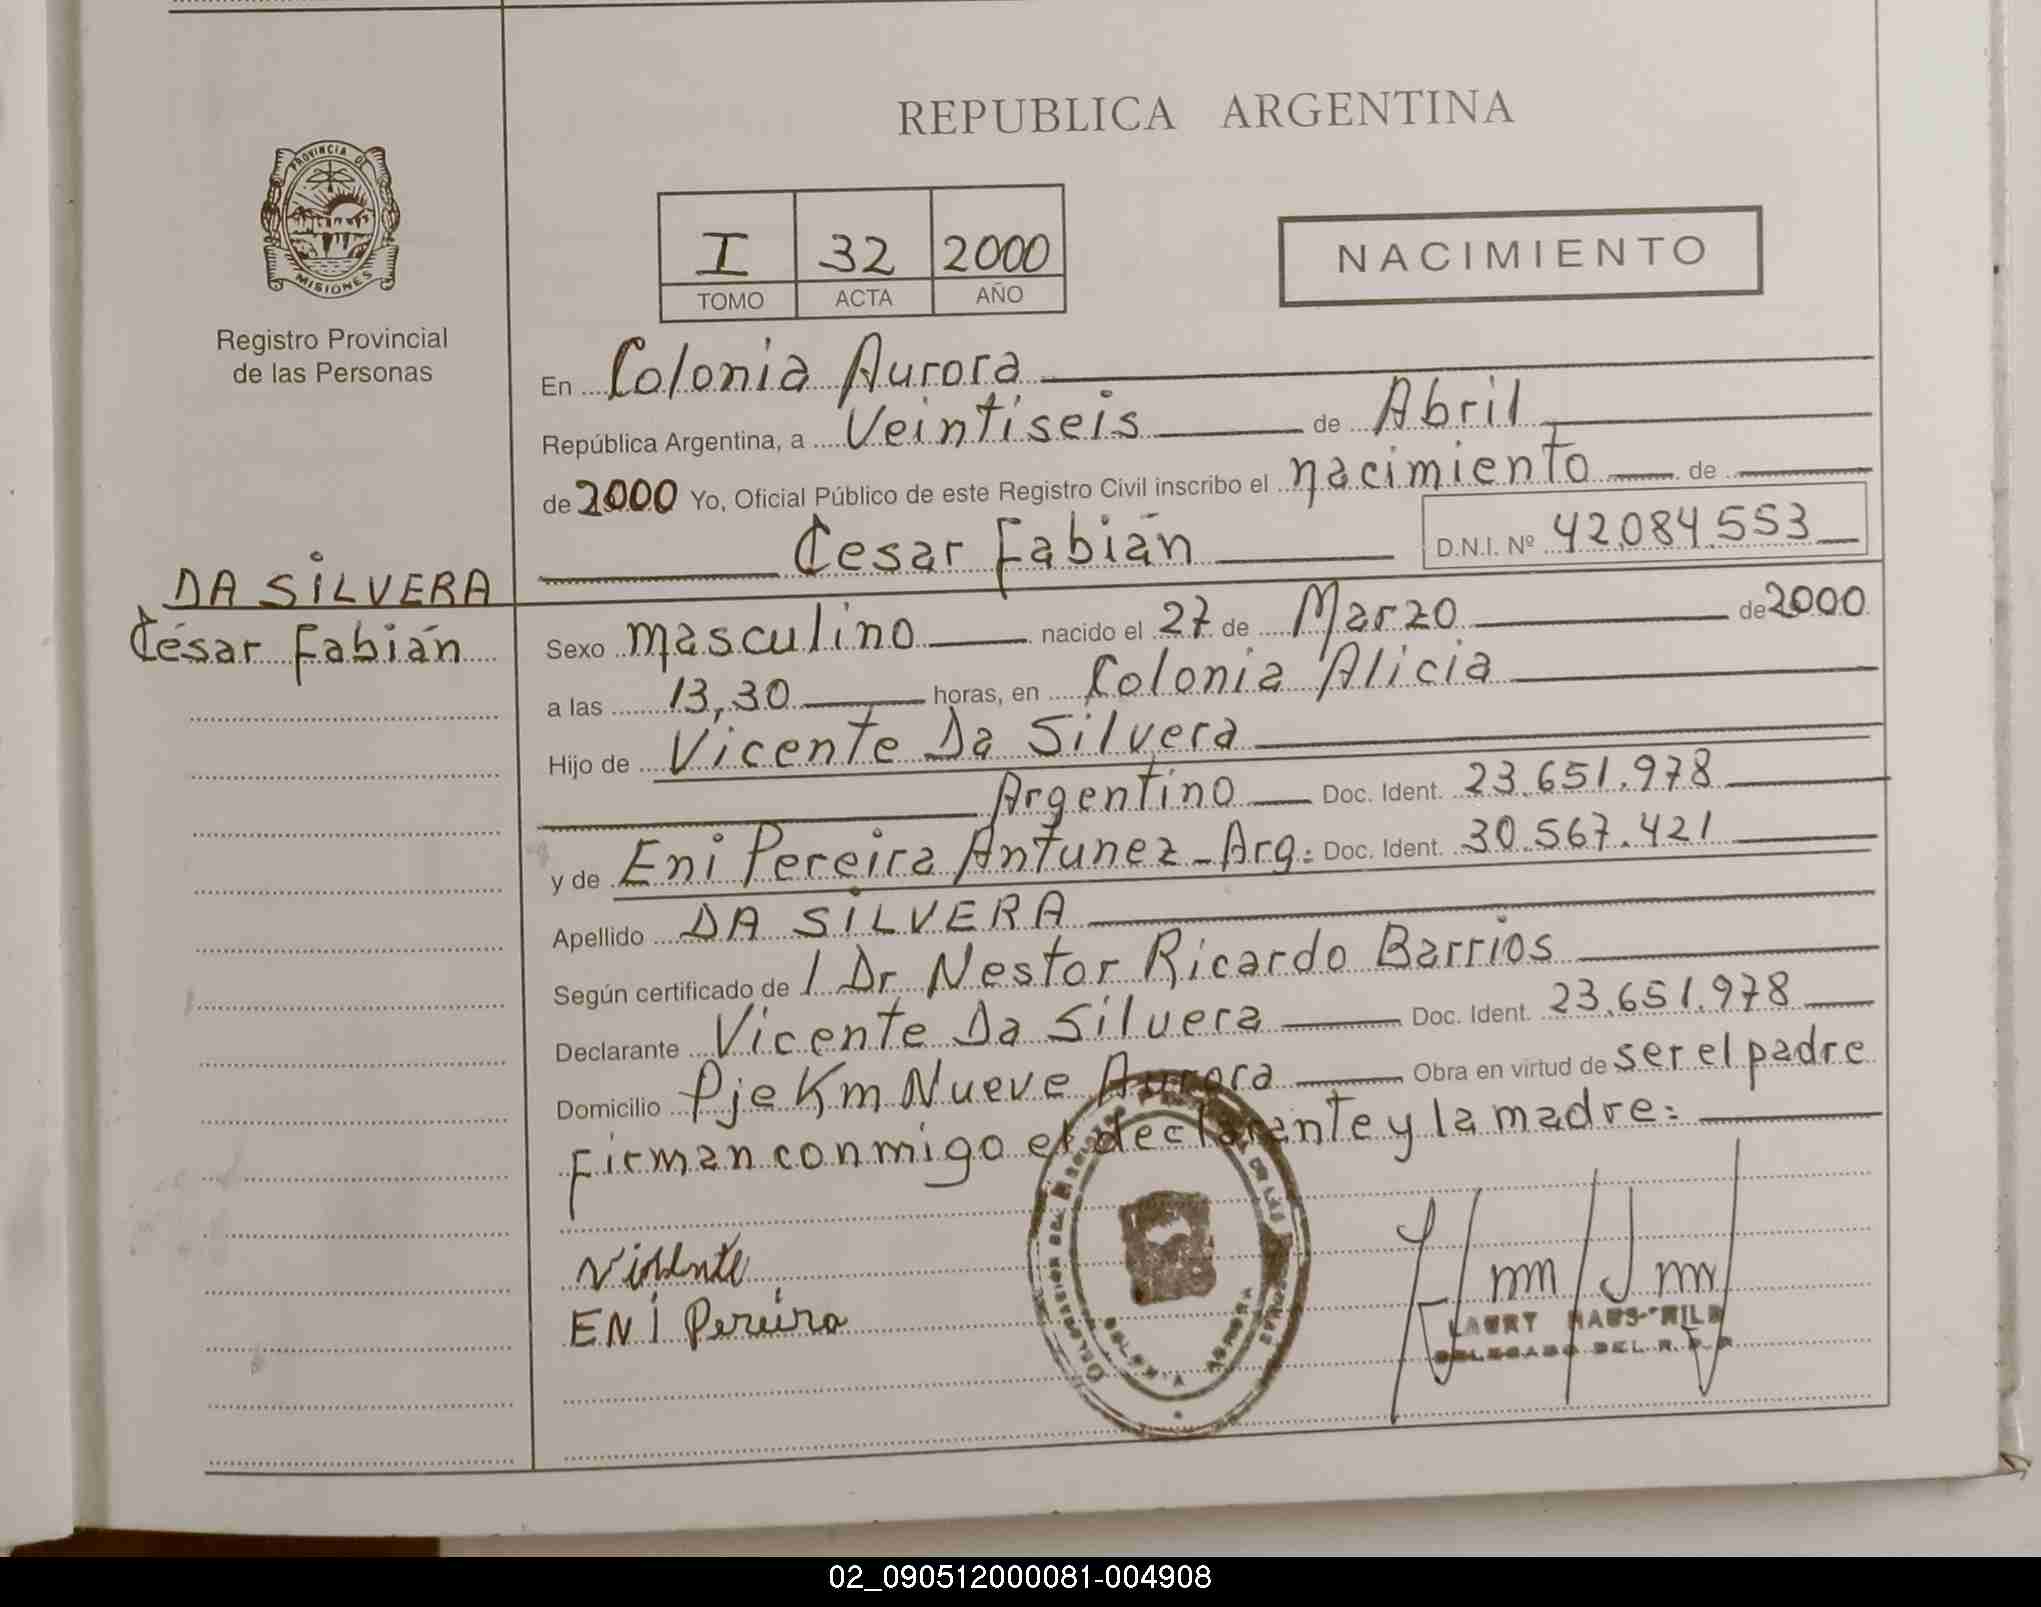 REPUBLICA ARGENTINA
PROVINCIA DE
MISIONES
Registro Provincial
de las Personas
I 32 2000
TOMO ACTA AÑO
NACIMIENTO
En Colonia Aurora
República Argentina, a Veintiseis de Abril
de 2000 Yo, Oficial Público de este Registro Civil inscribo el nacimiento de
Cesar Fabián D.N.I. Nº 42.084.553
DA SILVERA
César Fabián
Sexo masculino nacido el 27 de Marzo de 2000
a las 13,30 horas, en Colonia Alicia
Hijo de Vicente Da Silvera
Argentino Doc. Ident. 23.651.978
y de Eni Pereira Antunez - Arg. Doc. Ident. 30.567.421
Apellido DA SILVERA
Según certificado de / Dr Nestor Ricardo Barrios
Declarante Vicente Da Silvera Doc. Ident. 23.651.978
Domicilio Pje Km Nueve Aurora Obra en virtud de ser el padre
Firman conmigo el declarante y la madre:
Vicente
ENI Pereira
DELEGADO DEL R. P. P.
02_090512000081-004908